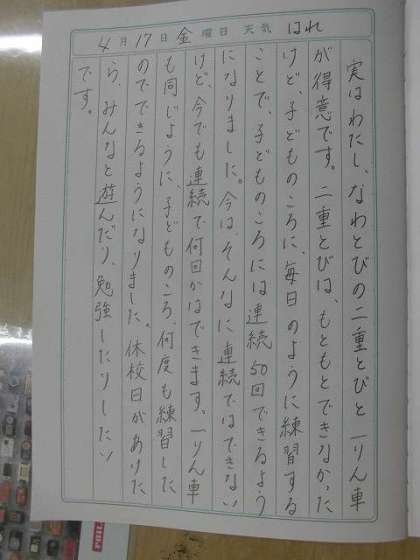 4月17日金曜日 天気 はれ
実はわたし、なわとびの二重とびと一りん車
が得意です。二重とびは、もともとできなかった
けど、子どものころに、毎日のように練習する
ことで、子どものころには連続50回できるよう
になりました。今は、そんなに連続ではできない
けど、今でも連続で何回かはできます。一りん車
も同じように、子どものころ、何度も練習した
のでできるようになりました。休校日があけた
ら、みんなと遊んだり、勉強したりしたい
です。